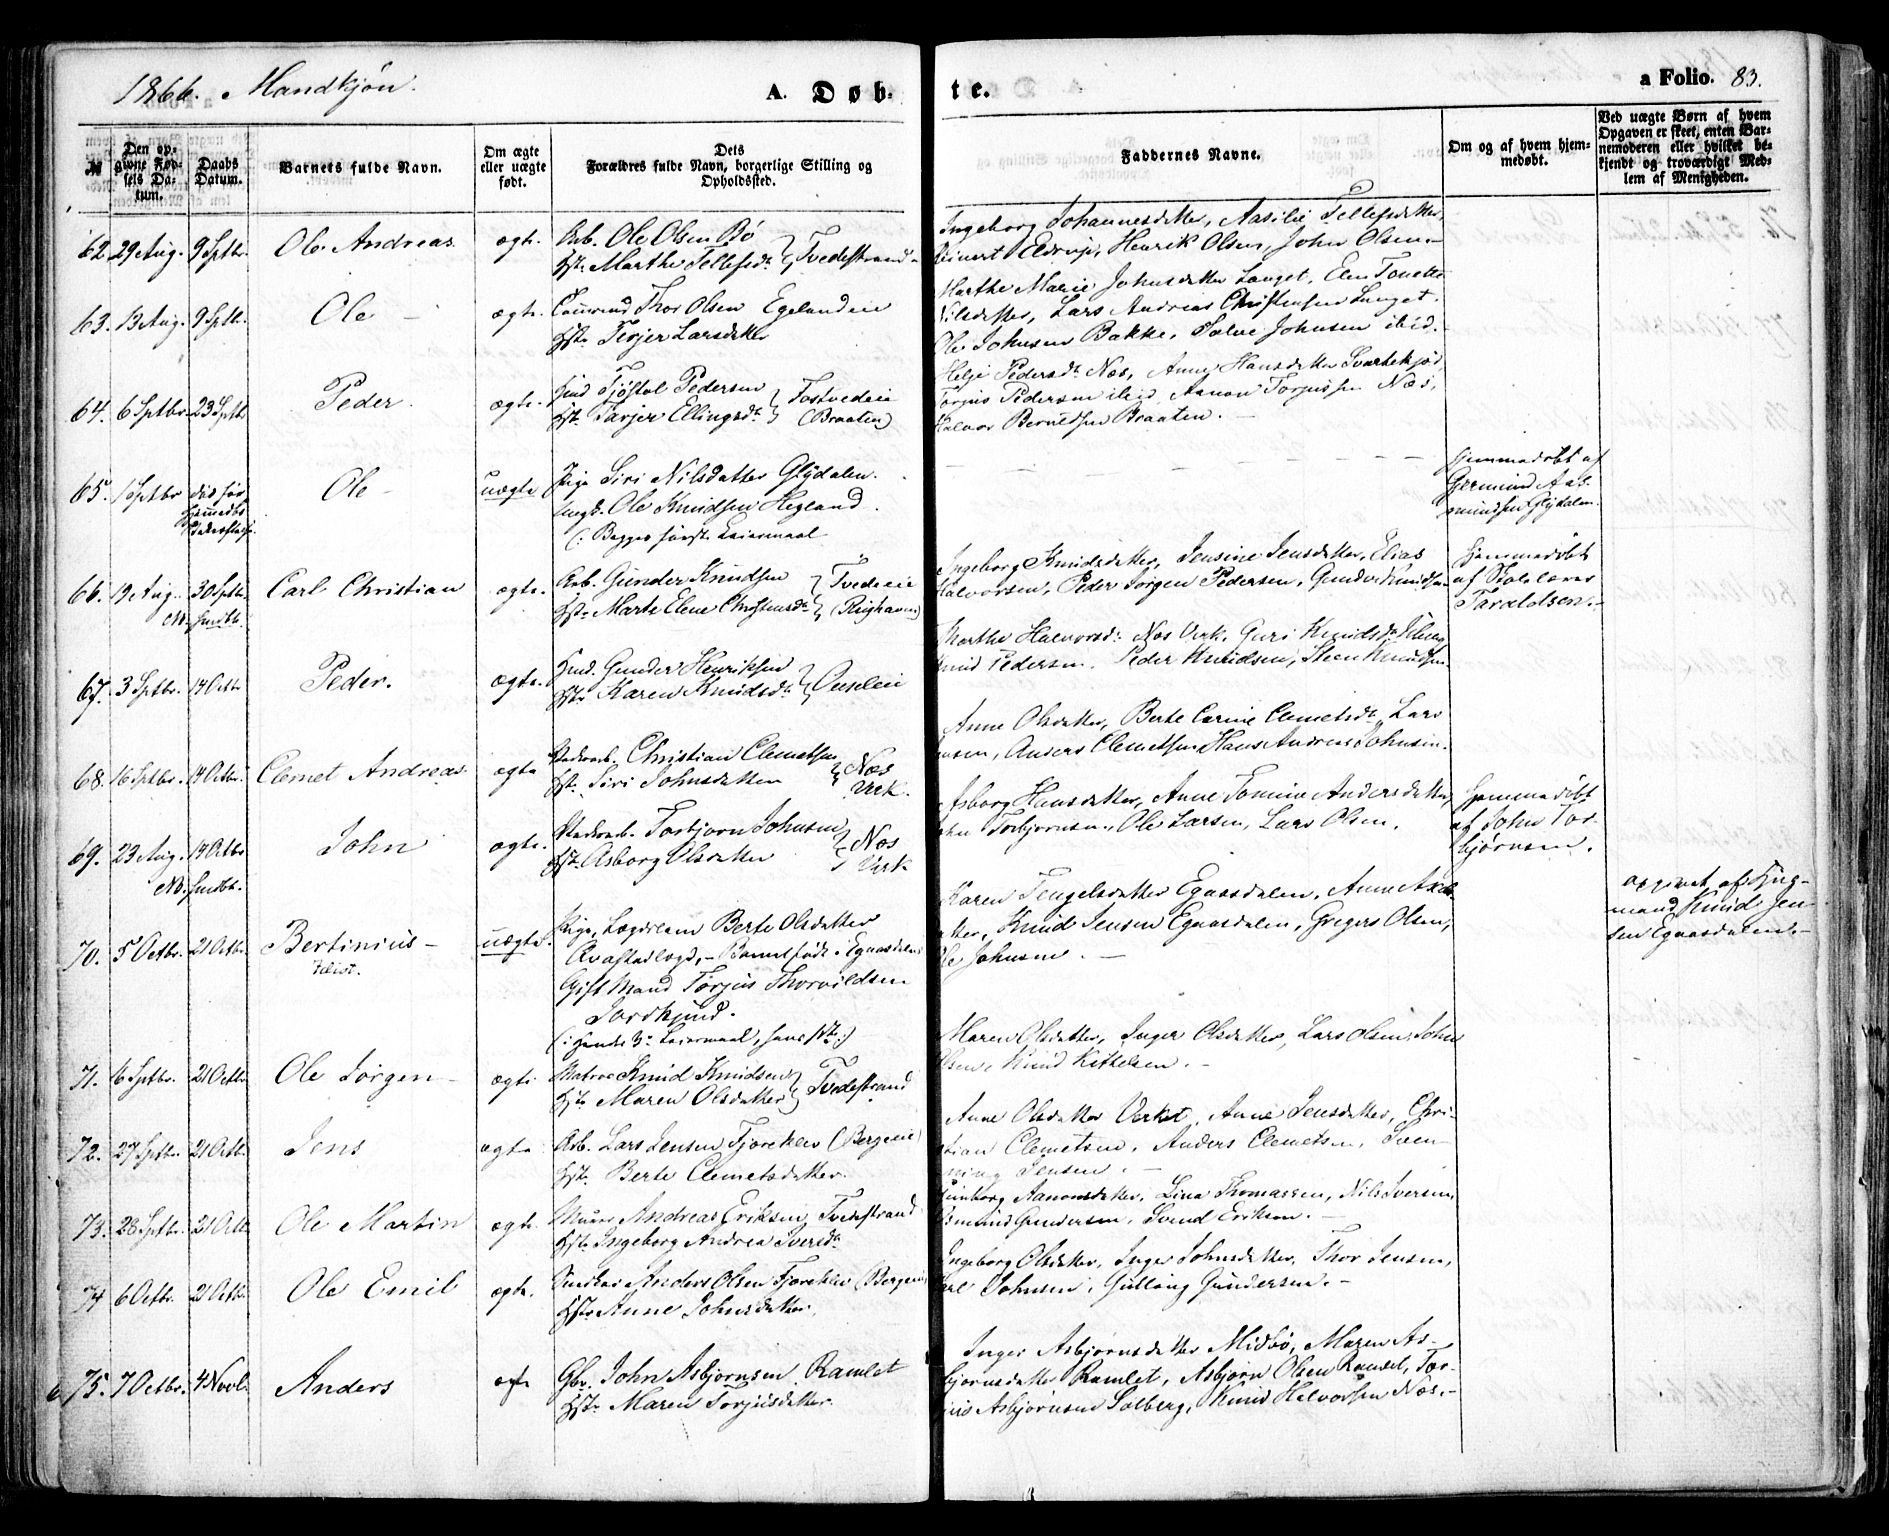 1866. Mandkjøn.
A. Døbte.
a Folio. 83.
№
Den opgivne Fødsels Datum.
Daabs Datum.
Barnets fulde Navn.
Om ægte eller uægte født.
Dets Forældres fulde Navn, borgerlige Stilling og Opholdssted.
Faddernes Navne.
Om og af hvem hjemmedøbt.
Ved uægte Børn af hvem Opgaven er skeet, enten Barnemoderen eller hvilket bekjendt og troværdigt Medlem af Menigheden.
62. 29 Aug. 9 Septbr. Ole Andreas ægte. Arb. Ole Olsen Bø
Hst. Marthe Tellefsdr. } Tvedestrand
Ingeborg Johannesdatter, Aasilie Tellefsdatter,
Henrik Olsen, John Olsen.
63. 13 Aug. 9 Septb. Ole ægte. Thor Olsen Egelandeie
Hst. Terjer Larsdatter
Marthe Marie Johnsdatter Langet, Elen Tonette
Nilsdatter, Lars Andreas Christensen Langet.
Ole Johnsen Bakke, Salve Johnsen ibid.
64. 6 Septbr. 23 Septb. Peder. ægte. Hmd. Tjøstol Pedersen
Hst. Tarjer Ellingsdr. } Tostvedeie (Braaten)
Helje Pedersdr. Næs, Anne Hansdatter Svartekjød,
Torjus Pedersen ibid, Aanon Torjussen Næs,
Halvor Berntsen Braaten.
65. 1 Septbr. død før Ole uægte Pige Siri Nilsdatter Glydalen.
Ungk. Ole Knudsen Hegland.
(: Begges første Leiermaal
Hjemmedøbt af
Germund Aas-
mundsen Glydalen.
66. 19 Aug. 30 Septb. Carl Christian ægte. Arb. Gunder Knudsen
Hst. Marte Elene Christensdr. } Tvedeeie (Righavn)
Ingeborg Knudsdatter, Jensine Jensdatter, Elias
Halvorsen, Peder Jørgen Pedersen, Gunder Knudsen
Hjemmedøbt
af Skolelærer
Taraldsen.
67. 3 Septbr. 14 Octbr. Peder. ægte. Hmd. Gunder Henriksen
Hst. Karen Knudsdr. }
Marthe Halvorsdr. Næs Verk, Guri Knudsdr.
Knud Pedersen, Peder Knudsen, Steen Knudsen.
68. 16 Septbr. 14 Octbr. Clemet Andreas ægte Christian Clemetsen
Hst. Siri Johnsdatter } Næs Verk.
Anne Olsdatter, Berte Carine Clemetsdr. Lars
Anders Clemetsen, Hans Andreas Johnsen.
69. 23 Aug. 14 Octbr. John ægte. Torbjørn Johnsen
Hst. Asborg Olsdatter } Næs Verk
Asborg Hansdatter, Anne Tomine Andersdatter,
John Torbjørnsen, Ole Larsen, Lars Olsen.
Hjemmedøbt
af John Tor-
bjørnsen.
70. 5 Octbr. 21 Octbr. Bertinius uægte. Pige, Lægdslem Berte Olsdatter
Barnet født i Egaasdalen
Gift Mand Torjus Thorvildsen
(: hendes 3die Leiermaal, hans 1ste :)
Karen Tengelsdatter Egaasdalen, Anne
Knud Jensen Egaasdalen, Gregers Olsen,
Ole Johnsen.
opgivet af
mand Knud Jen-
sen Egaasdalen.
71. 16 Septbr. 21 Octbr. Ole Jørgen ægte Matros Knud Knudsen
Hst. Maren Olsdatter } Tvedestrand
Maren Olsdatter, Inger Olsdatter, Lars Olsen, John
Olsen, Knud Kittelsen.
72. 27 Septbr. 21 Octb. Jens ægte Arb. Lars Jensen Fjærekler (Bergeeie)
Hst. Berte Clemetsdatter.
Anne Olsdatter Verket, Anne Jensdatter, Chri-
stian Clemetsen, Anders Clemetsen,
Jensen.
73. 28 Septbr. 21 Octb. Ole Martin ægte. Murer Andreas Eriksen, Tvedestrand
Hst. Ingeborg Andrea Iversdr.
Aanonsdatter, Lina Thomassen, Nils Iversen,
Gundersen, Svend Eriksen.
74. 6 Octbr. 21 Octb. Ole Emil ægte. Snedker Anders Olsen Fjærekler (Bergeeie)
Hst. Anne Johnsdatter.
Ingeborg Olsdatter, Inger Johnsdatter, Thor Jensen,
Johnsen, Gulleug Gundersen.
75. 7 Octbr. 4 Novb. Anders ægte Gbr. John Asbjørnsen Ramlet
Hst. Maren Torjusdatter.
Inger Asbjørnsdatter Midbø, Maren As-
bjørnsdatter Ramlet, Asbjørn Olsen Ramlet, Tor-
jus Asbjørnsen Solberg, Knud Halvorsen Næs.